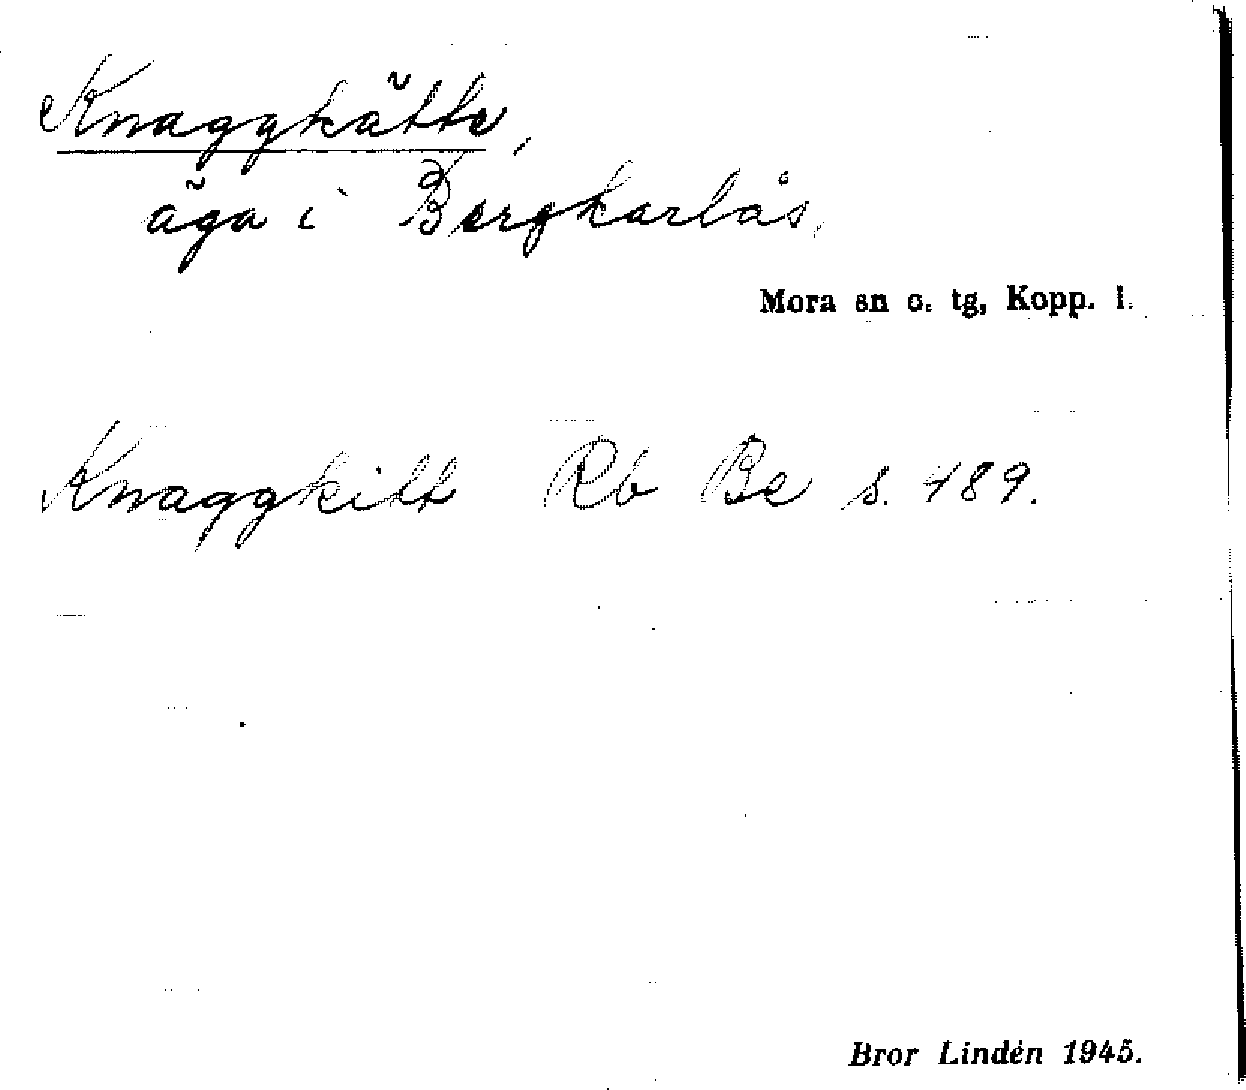 Knaggkätte,
äga i Bergkarlås,
Mora sn o. tg, Kopp. l.
Knaggkitt Rb Be s. 489.
Bror Lindén 1945.